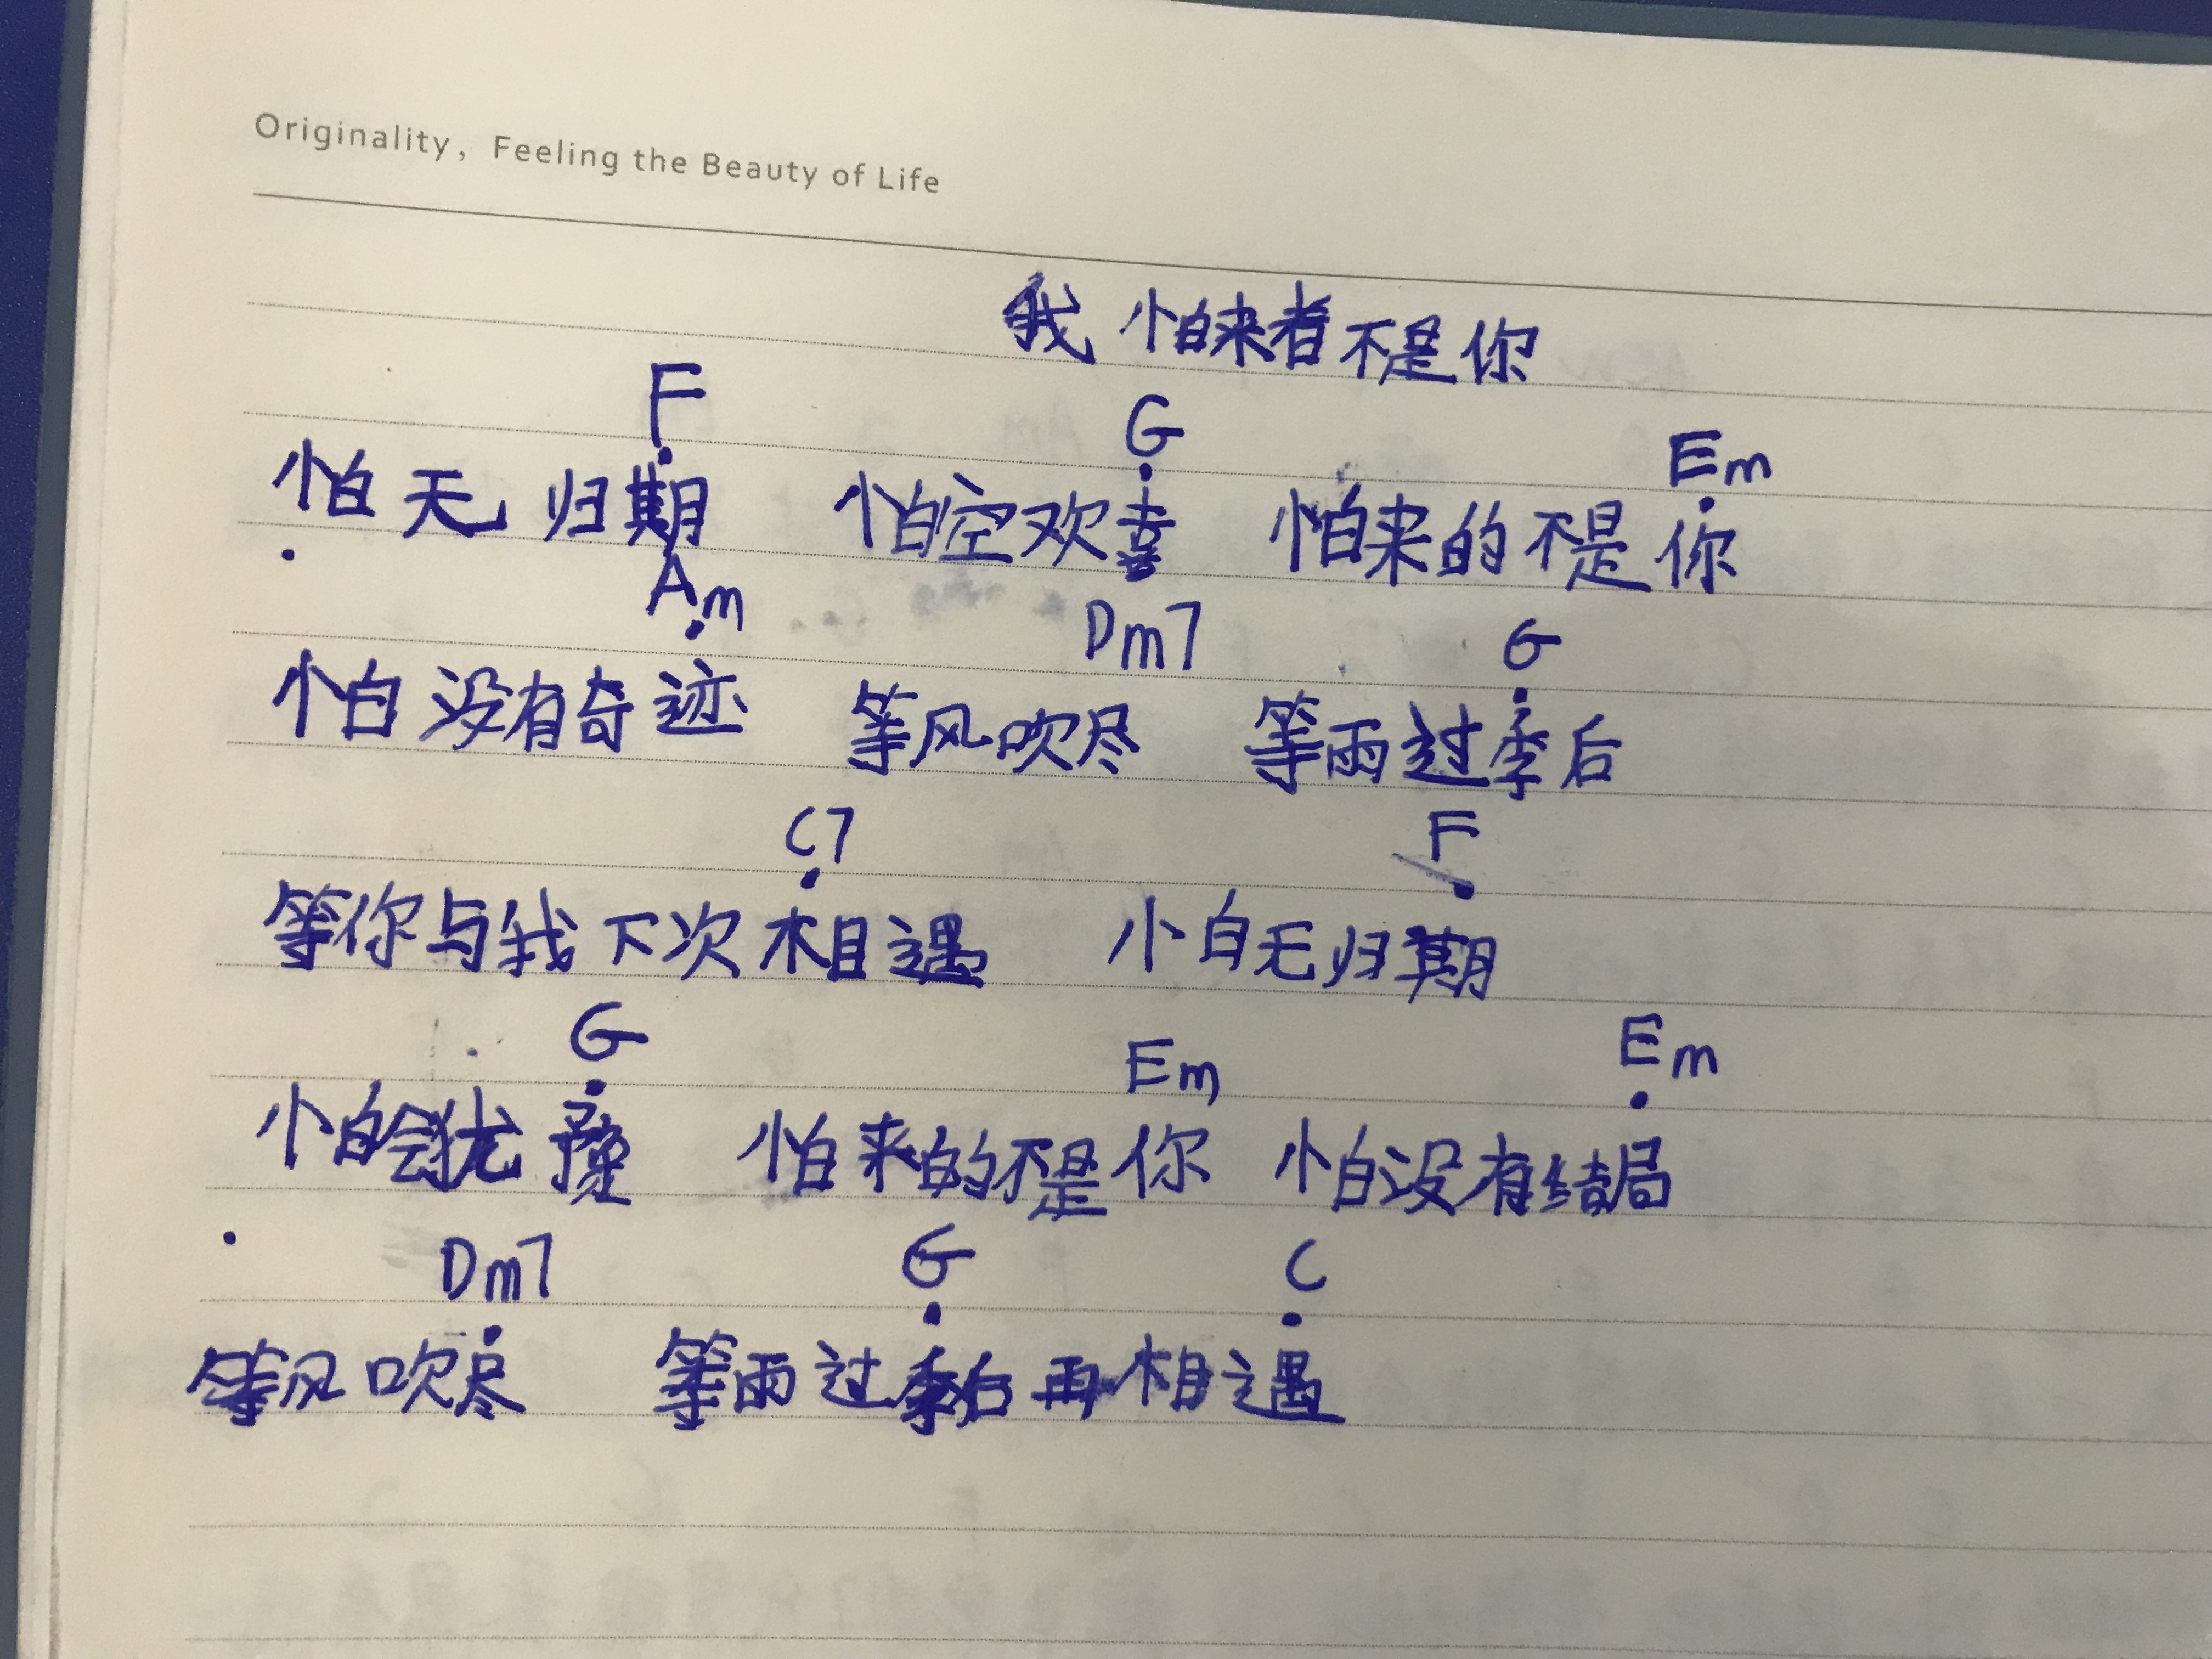 Originality, Feeling the Beauty of Life
我怕来者不是你
F G Em
怕无归期 怕空欢喜 怕来的不是你
Am Dm7 G
怕没有奇迹 等风吹尽 等雨过季后
C7 F
等你与我下次相遇 怕无归期
G Em Em
怕会犹豫 怕来的不是你 怕没有结局
Dm7 G C
等风吹尽 等雨过季后再相遇